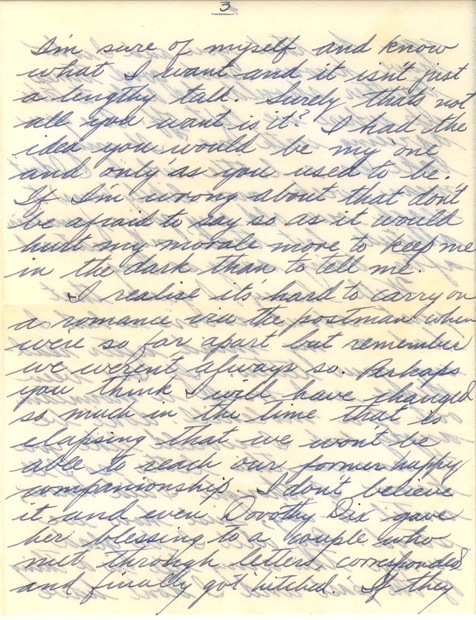 3
I'm sure of myself and know
what I want and it isn't just
a lengthy talk. Surely that's not
all you want is it? I had the
idea you would be my one
and only as you used to be.
If I'm wrong about that don't
be afraid to say so as it would
hurt my morale more to keep me
in the dark than to tell me.
I realize it's hard to carry on
a romance via the postman when
we're so far apart but remember
we weren't always so. Perhaps
you think I will have changed
so much in the time that is
elapsing that we won't be
able to reach our former happy
companionship. I don't believe
it and even Dorothy Dix gave
her blessing to a couple who
met through letters, corresponded
and finally got hitched. If they